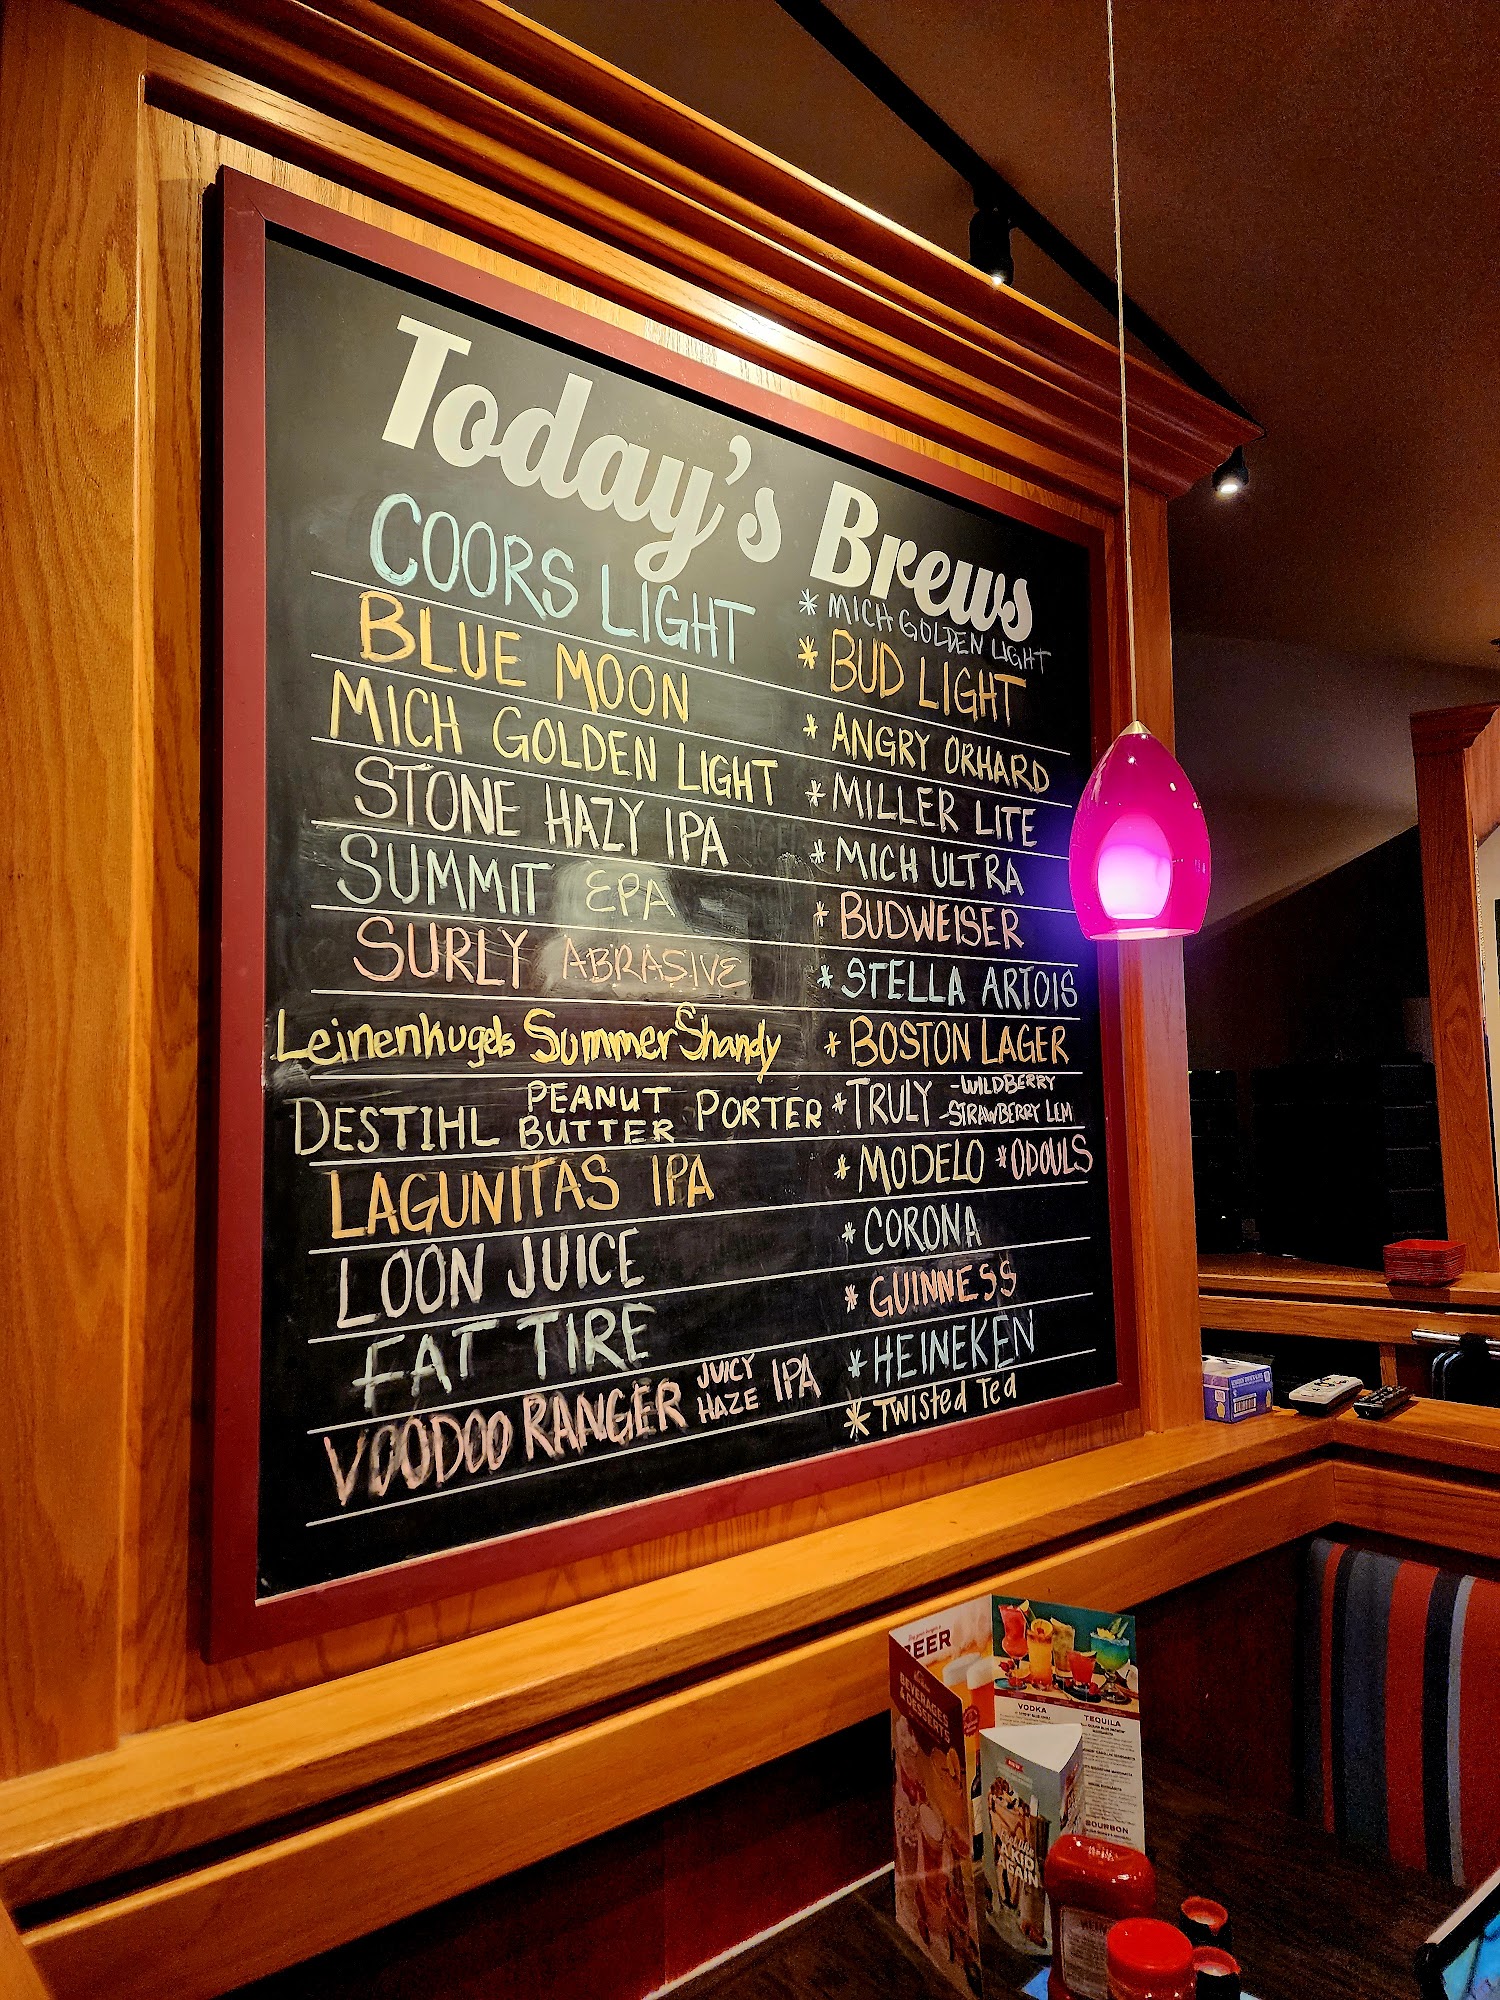 Today's Brews
COORS LIGHT
BLUE MOON
MICH GOLDEN LIGHT
STONE HAZY IPA
SUMMIT EPA
SURLY ABRASIVE
Leinenkugels Summer Shandy
DESTIHL PEANUT BUTTER PORTER
LAGUNITAS IPA
LOON JUICE
FAT TIRE
VOODOO RANGER JUICY HAZE IPA
* MICH GOLDEN LIGHT
* BUD LIGHT
* ANGRY ORHARD
* MILLER LITE
* MICH ULTRA
* BUDWEISER
* STELLA ARTOIS
* BOSTON LAGER
* TRULY -WILDBERRY
-STRAWBERRY LEM
* MODELO *ODOULS
* CORONA
* GUINNESS
* HEINEKEN
* TWISTED TEA
BEVERAGES
& DESSERTS
VODKA
TEQUILA
BOURBON
A KID
AGAIN